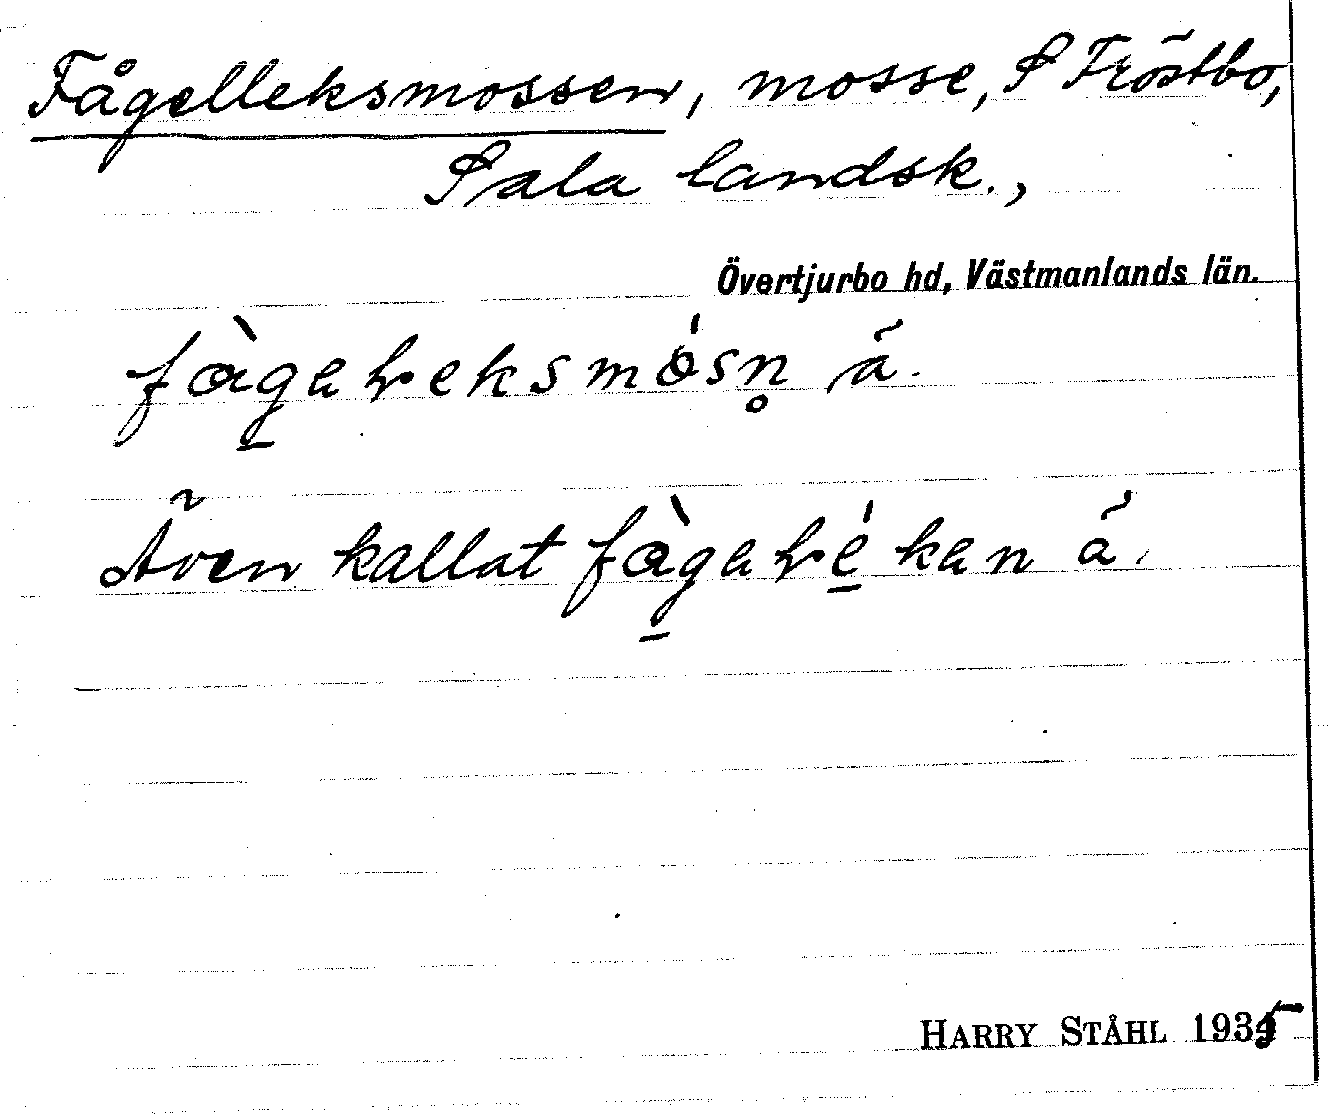 Fågelleksmossen, mosse, S Fröstbo,
Sala landsk.,
Övertjurbo hd, Västmanlands län.
Även kallat
HARRY STÅHL 1935